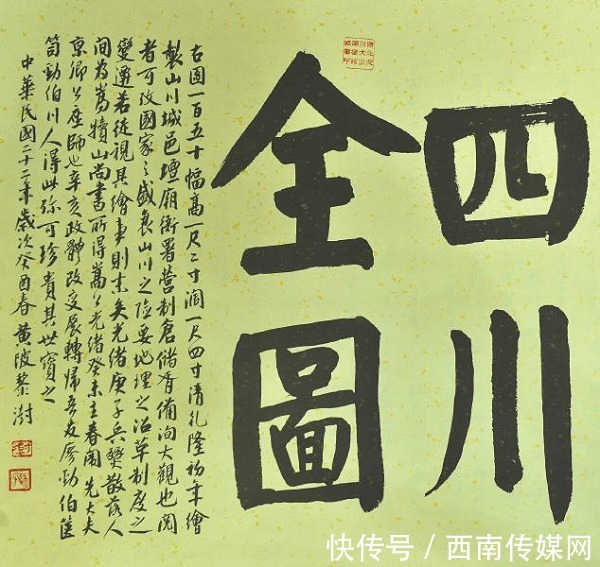 四川
全圖
古圖一百五十幅高一尺二寸濶一尺四寸清乾隆初年繪
製山川城邑壇廟衙署營制倉儲胥備洵大觀也閱
者可攷國家之盛衰山川之險要地理之沿革制度之
變遷若徒視其繪事則末矣光緒庚子兵燹散落人
間為嵩犢山尚書所得嵩公光緒癸未主春闈先大夫
京卿公座師也辛亥政體改變展轉歸吾友廖勁伯篋
笥勁伯川人得此弥可珍貴其世寶之
中華民國二十二年歲次癸酉春黃陂黎澍
快传号/西南传媒网